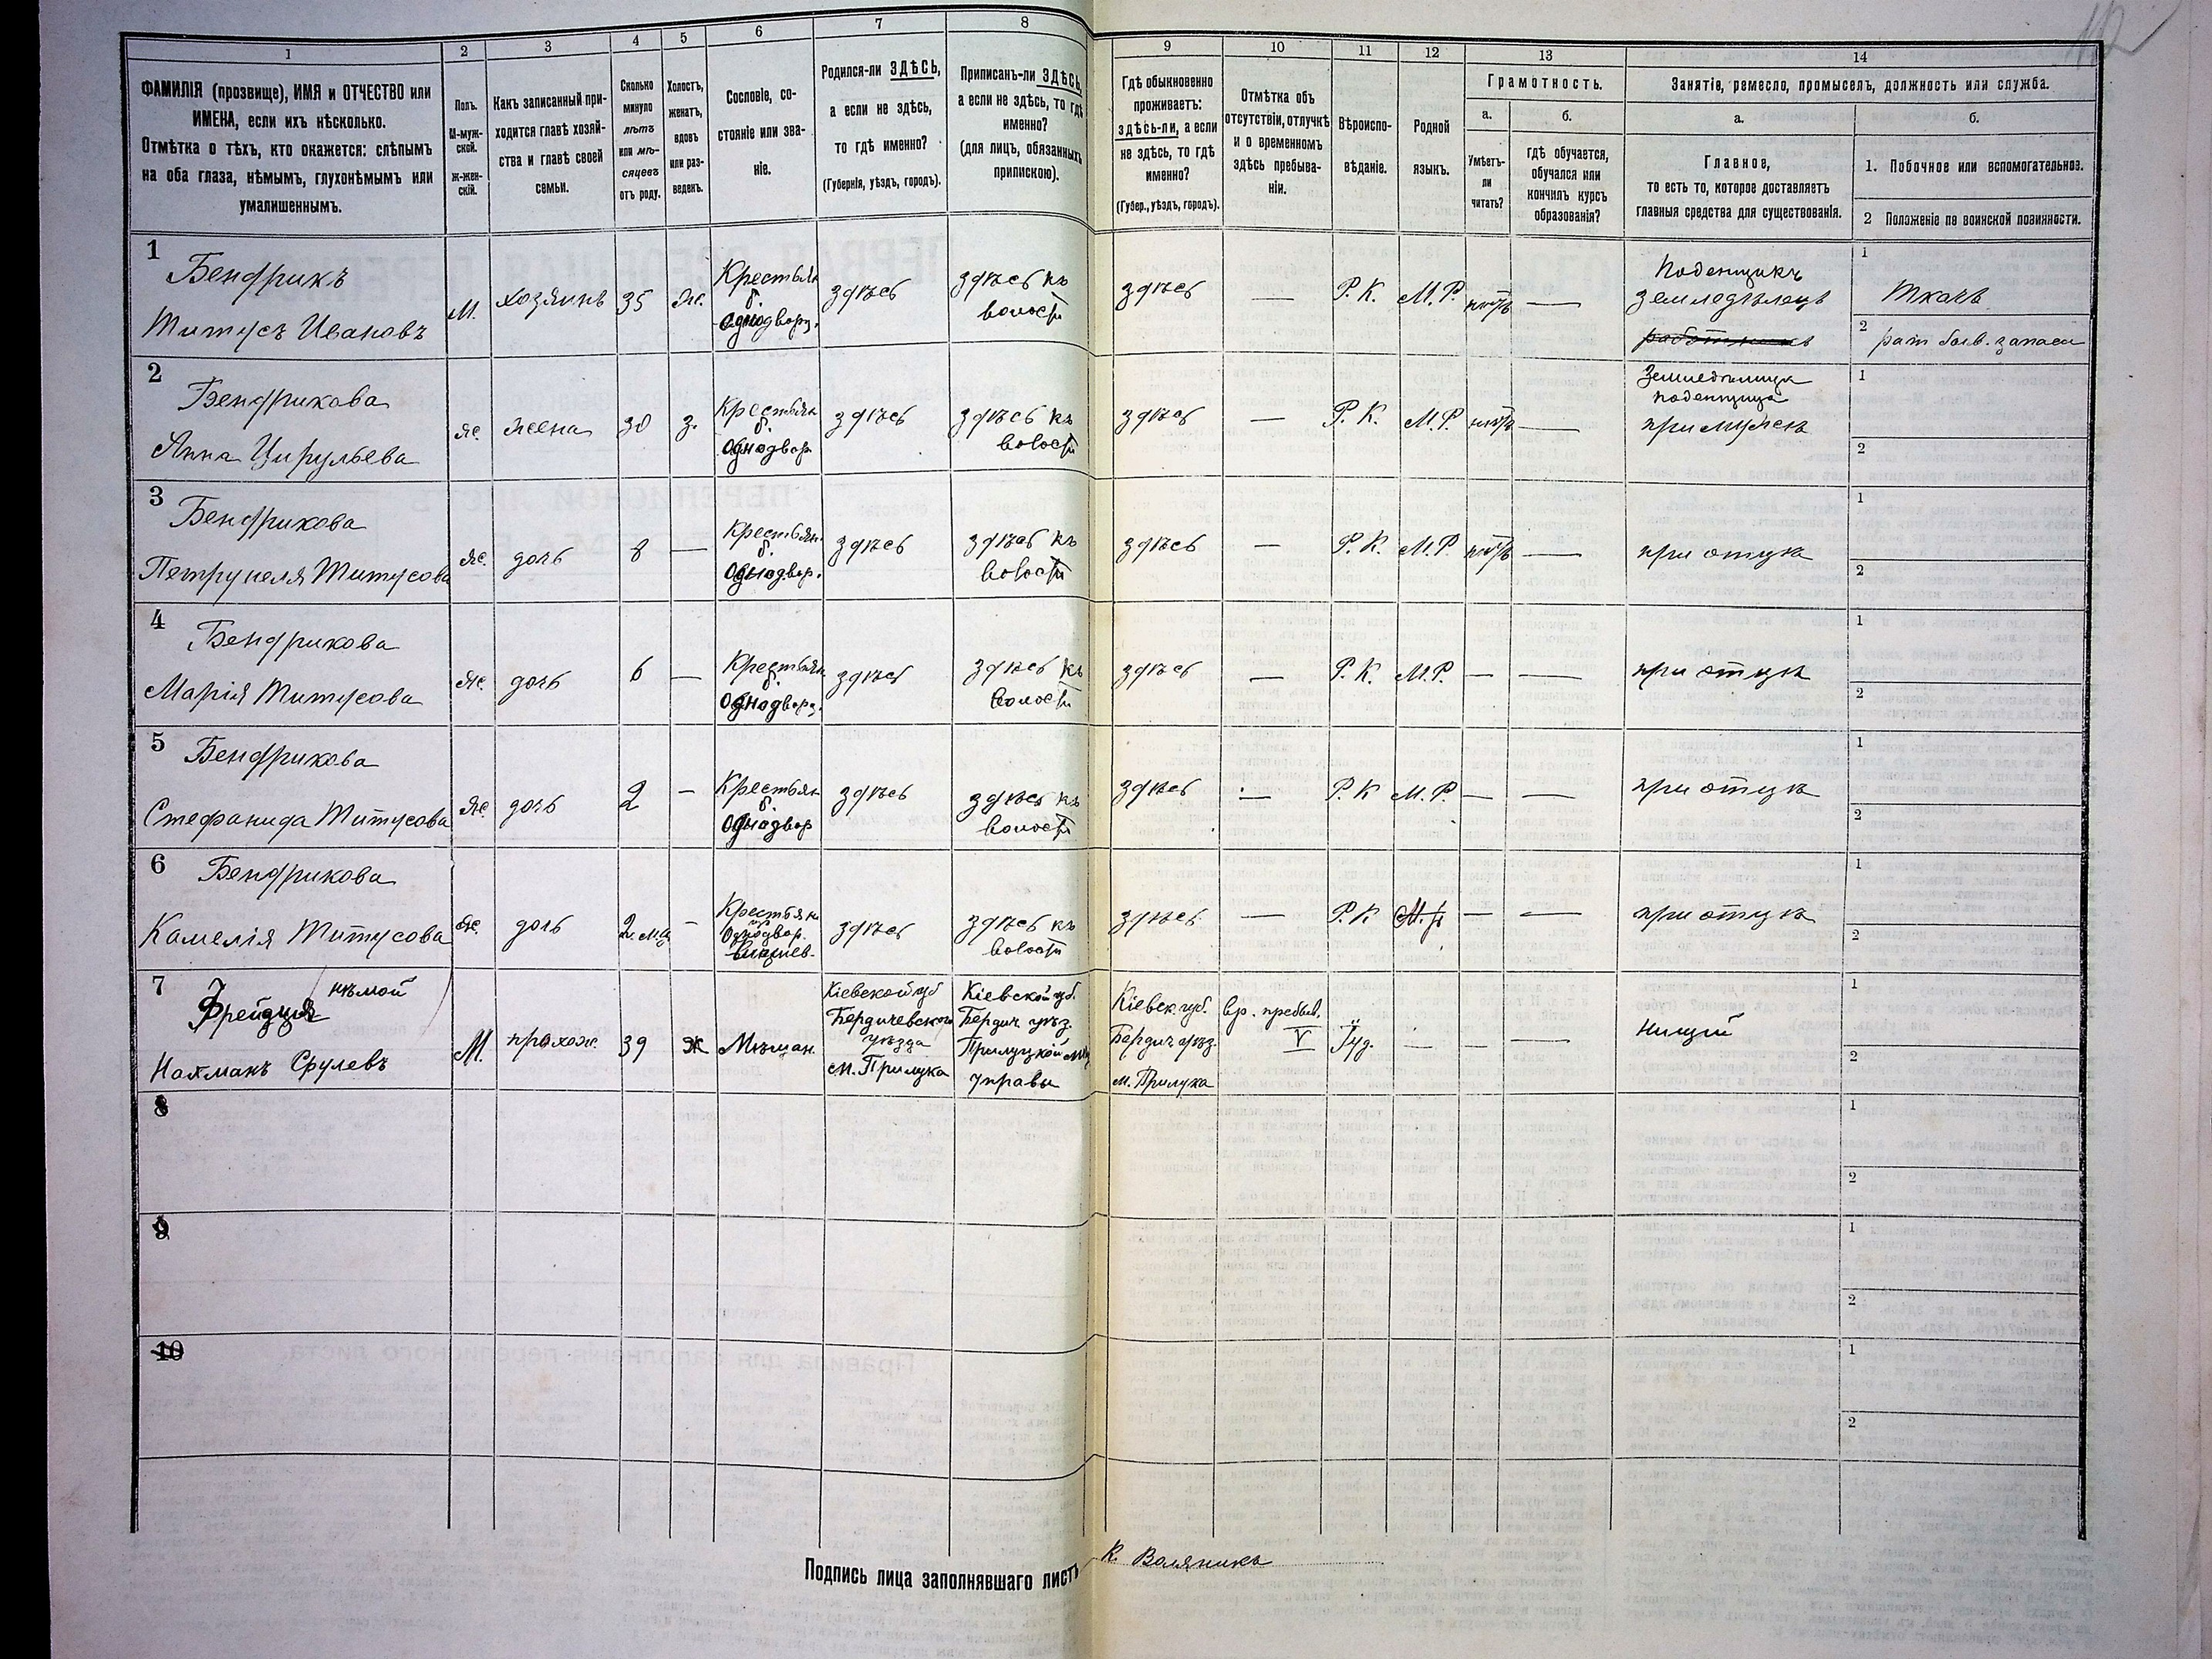 1
2
3
4
5
6
7
8
9
10
11
12
13
14
ФАМИЛІЯ (прозвище), ИМЯ и ОТЧЕСТВО или
ИМЕНА, если ихъ нѣсколько.
Отмѣтка о тѣхъ, кто окажется: слѣпымъ
на оба глаза, нѣмымъ, глухонѣмымъ или
умалишеннымъ.
Полъ.
М-муж-
ской.
ж-жен-
скій.
Какъ записанный при-
ходится главѣ хозяй-
ства и главѣ своей
семьи.
Сколько
минуло
лѣтъ
или мѣ-
сяцевъ
отъ роду.
Холостъ,
женатъ,
вдовъ
или раз-
веденъ.
Сословіе, со-
стояніе или зва-
ніе.
Родился-ли ЗДѢСЬ,
а если не здѣсь,
то гдѣ именно?
(Губернія, уѣздъ, городъ).
Приписанъ-ли ЗДѢСЬ,
а если не здѣсь, то гдѣ
именно?
(для лицъ, обязанныхъ
припискою).
Гдѣ обыкновенно
проживаетъ:
здѣсь-ли, а если
не здѣсь, то гдѣ
именно?
(Губер., уѣздъ, городъ).
Отмѣтка объ
отсутствіи, отлучкѣ
и о временномъ
здѣсь пребыва-
ніи.
Вѣроиспо-
вѣданіе.
Родной
языкъ.
Грамотность.
а.
Умѣетъ-
ли
читать?
б.
гдѣ обучается,
обучался или
кончилъ курсъ
образованія?
Занятіе, ремесло, промыселъ, должность или служба.
а.
Главное,
то есть то, которое доставляетъ
главныя средства для существованія.
б.
1. Побочное или вспомогательное.
2 Положеніе по воинской повинности.
1
Бенфрикъ
Титусъ Ивановъ
М.
хозяинъ
35
Ж.
Крестьян
б.
однодворц.
здѣсь
здѣсь къ
волости
здѣсь
—
Р. К.
М. Р.
нѣтъ
—
Поденщикъ
земледѣлецъ
работникъ
1
Ткачъ
2
рат ... запаса
2
Бенфрикова
Анна Цирульева
Ж.
жена
30
З.
Крестьян
б.
Однодвор
здѣсь
здѣсь къ
волости
здѣсь
—
Р. К.
М. Р
нѣтъ
—
Земледѣлица
поденщица
при мужѣ
1
2
3
Бенфрикова
Петрунеля Титусова
Ж.
дочь
8
—
Крестьян.
б.
Однодвор.
здѣсь
здѣсь къ
волости
здѣсь
—
Р. К.
М. Р
нѣтъ
—
при отцѣ
1
2
4
Бенфрикова
Марія Титусова
Ж.
дочь
6
—
Крестьян
б.
Однодворц.
здѣсь
здѣсь къ
волости
здѣсь
—
Р. К
М.Р.
—
—
при отцѣ
1
2
5
Бенфрикова
Стефанида Титусова
Ж.
дочь
2
-
Крестьян
б.
Однодвор
здѣсь
здѣсь къ
волости
здѣсь
—
Р. К
М. Р.
—
—
при отцѣ
1
2
6
Бенфрикова
Камелія Титусова
Ж.
дочь
2 мѣц
-
Крестьян
Однодвор.
здѣсь
здѣсь къ
волости
здѣсь
—
Р. К
М. р
—
—
при отцѣ
1
2
7
нѣмой
Нахманъ Срулевъ
М.
прохож.
39
Ж
Мѣщан.
Кіевской губ
Бердичевского
уѣзда
м. Прилука
Кіевской губ.
Бердич уѣз.
Прилуцкой мѣщ
управы
Кіевск. губ.
Бердич уѣз.
м. Прилука
вр. пребыв.
V
Іуд.
—
—
—
нищій
1
2
8
1
2
9
1
2
10
1
2
Подпись лица заполнявшаго листъ
К. Воляникъ